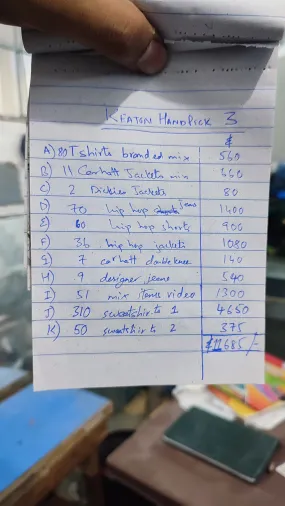 KEATON HANDPICK 3
$
A) 80 T shirts branded mix 560
B) 11 Carhatt Jackets mix 660
C) 2 Dickies Jackets 80
D) 70 hip hop jeans 1400
E) 60 hip hop shorts 900
F) 36 hip hop jackets 1080
G) 7 carhatt double knee 140
H) 9 designer jeans 540
I) 51 mix items video 1300
J) 310 sweatshirts 1 4650
K) 50 sweatshirts 2 375
$11685/-